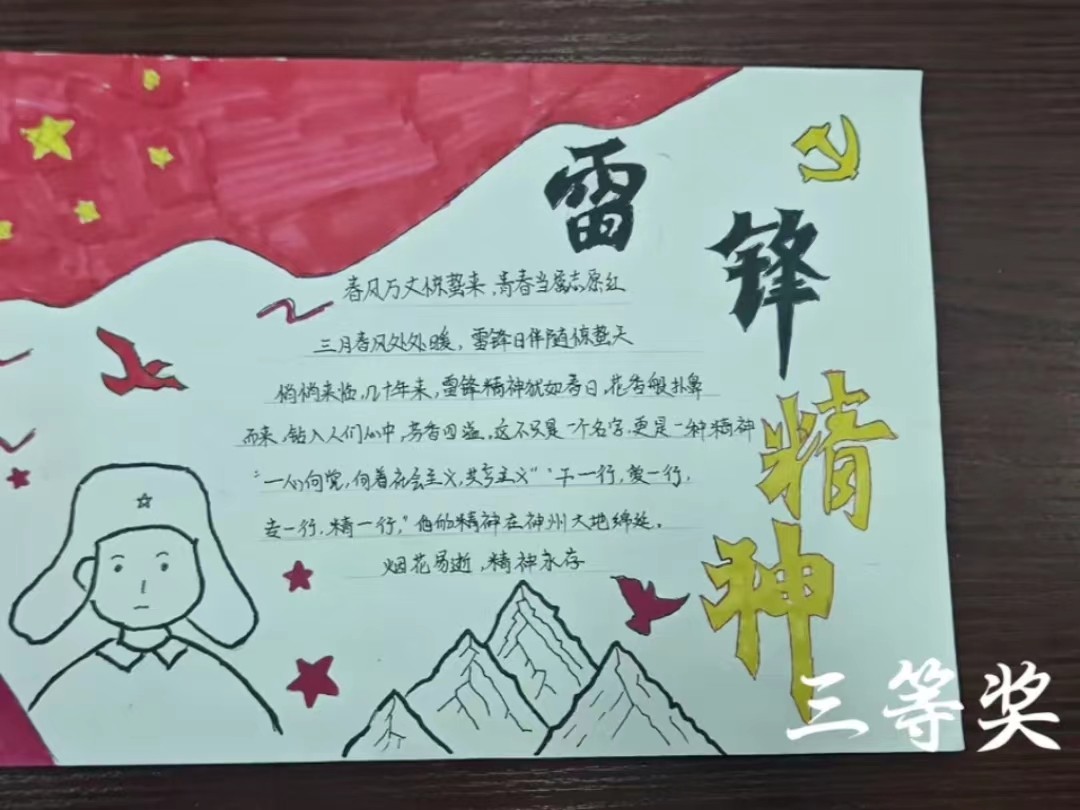 雷
锋
精
神
春风万丈惊蛰来，青春当燃志愿红
三月春风处处暖，雷锋日伴随惊蛰天
悄悄来临，几十年来，雷锋精神犹如春日，花香般扑鼻
而来，钻入人们心中，芳香四溢。这不只是一个名字，更是一种精神
“一心向党，向着社会主义，共产主义”“干一行，爱一行，
专一行，精一行，”他的精神在神州大地绵延。
烟花易逝，精神永存
三等奖